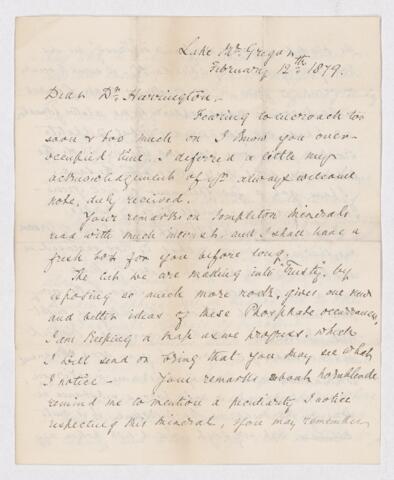 Lake McGregor
February 12th 1879.
Dear Dr. Harrington,
Fearing to encroach too
soon & too much on I know your over-
occupied time. I deferred a little my
acknowledgement of yr. always welcome
note, duly received.
Your remarks on Templeton minerals
read with much interest, and I shall have a
fresh box for you before long.
The cut we are making into "Trusty", by
exposing so much more rock, gives one new
and better ideas of these Phosphate occurrences,
I am keeping a map as we progress, which
I will send or bring that you may see what
I notice — Your remarks about hornblende
remind me to mention a peculiarity I notice
respecting this mineral, you may remember